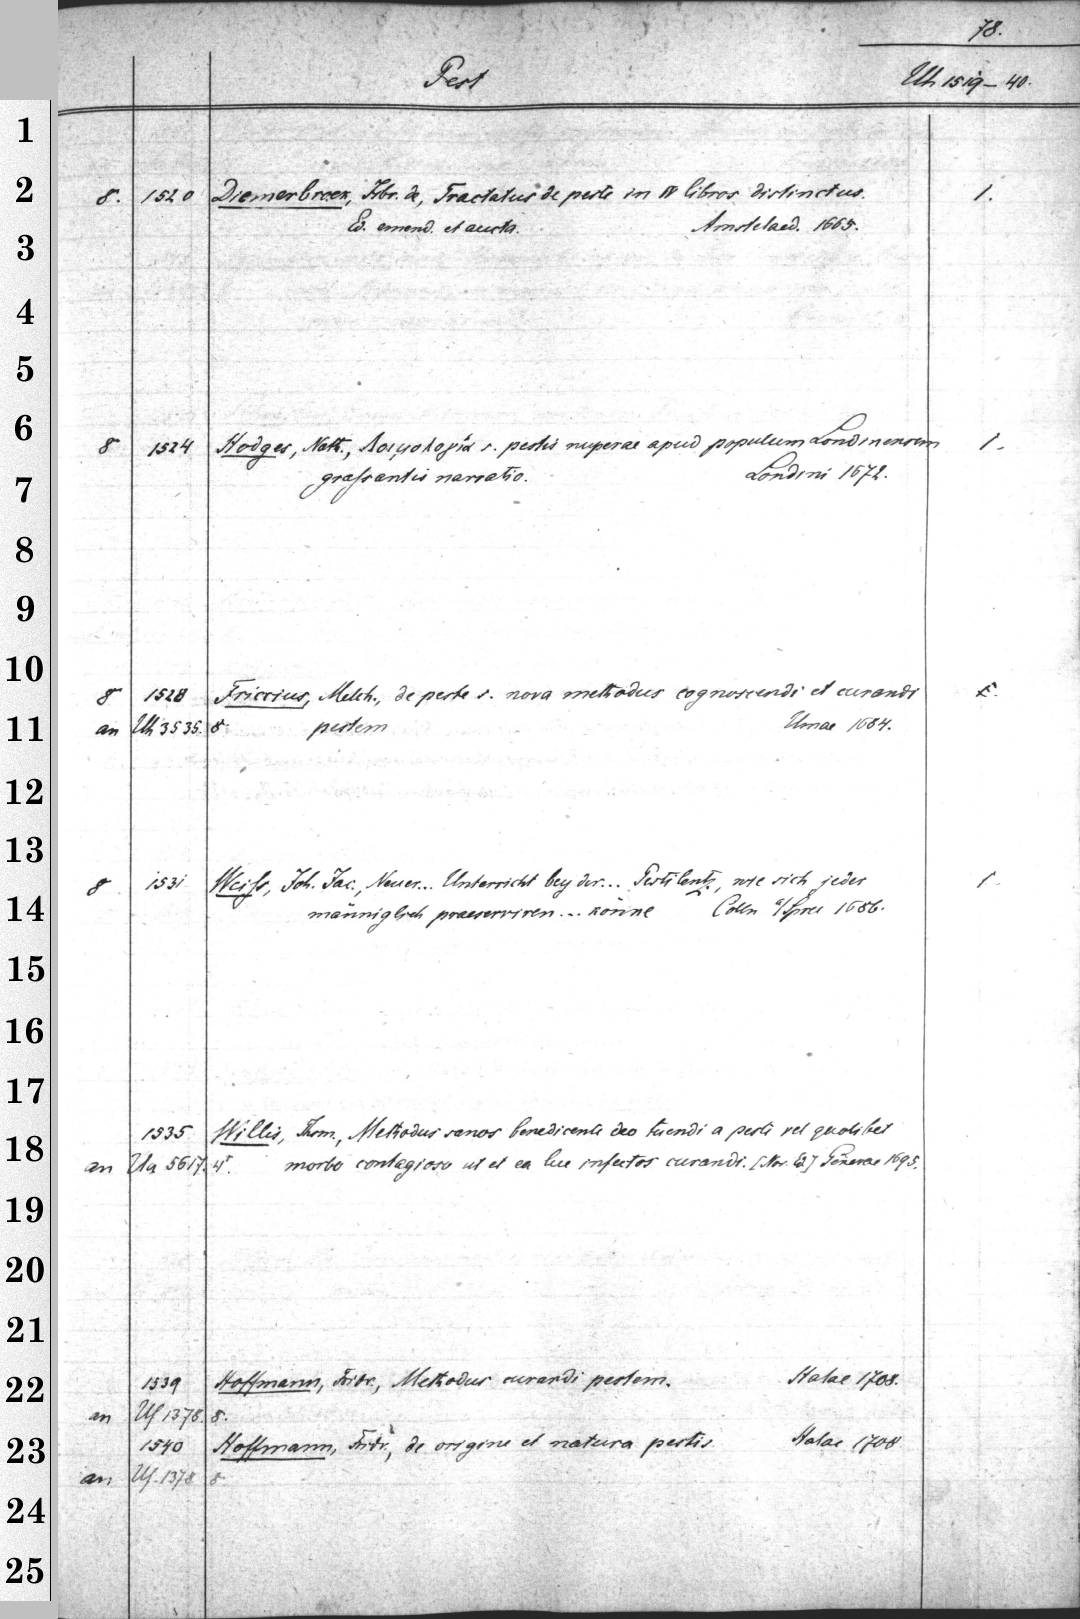 78.
Pest
Uh 1519–40.
1
2
3
4
5
6
7
8
9
10
11
12
13
14
15
16
17
18
19
20
21
22
23
24
25
8. 1520 Diemerbroek, Isbr. de, Tractatus de peste in IV libros distinctus. 1.
Ed. emend. et aucta. Amstelaed. 1665.
8 1524 Hodges, Nath., Λοιμολογία s. pestis nuperae apud populum Londinensem 1.
grassantis narratio. Londini 1672.
8 1528 Friccius, Melch., de peste s. nova methodus cognoscendi et curandi
an Uh 3535. 8. pestem Ulmae 1684.
8 1531 Weiss, Joh. Jac., Neuer... Unterricht bey der... Pestilentz, wie sich jeder 1
männiglich praeserviren... könne Cölln a/Spree 1686.
1535 Willis, Thom., Methodus sanos benedicente deo tuendi a peste vel quolibet
an Ua 5617. 4°. morbo contagioso ut et ea lue infectos curandi. [Nov. Ed.] Genevae 1695.
1539 Hoffmann, Fridr., Methodus curandi pestem. Halae 1708.
an Uf 1378. 8.
1540 Hoffmann, Fridr., de origine et natura pestis. Halae 1708
an Uf 1378 8